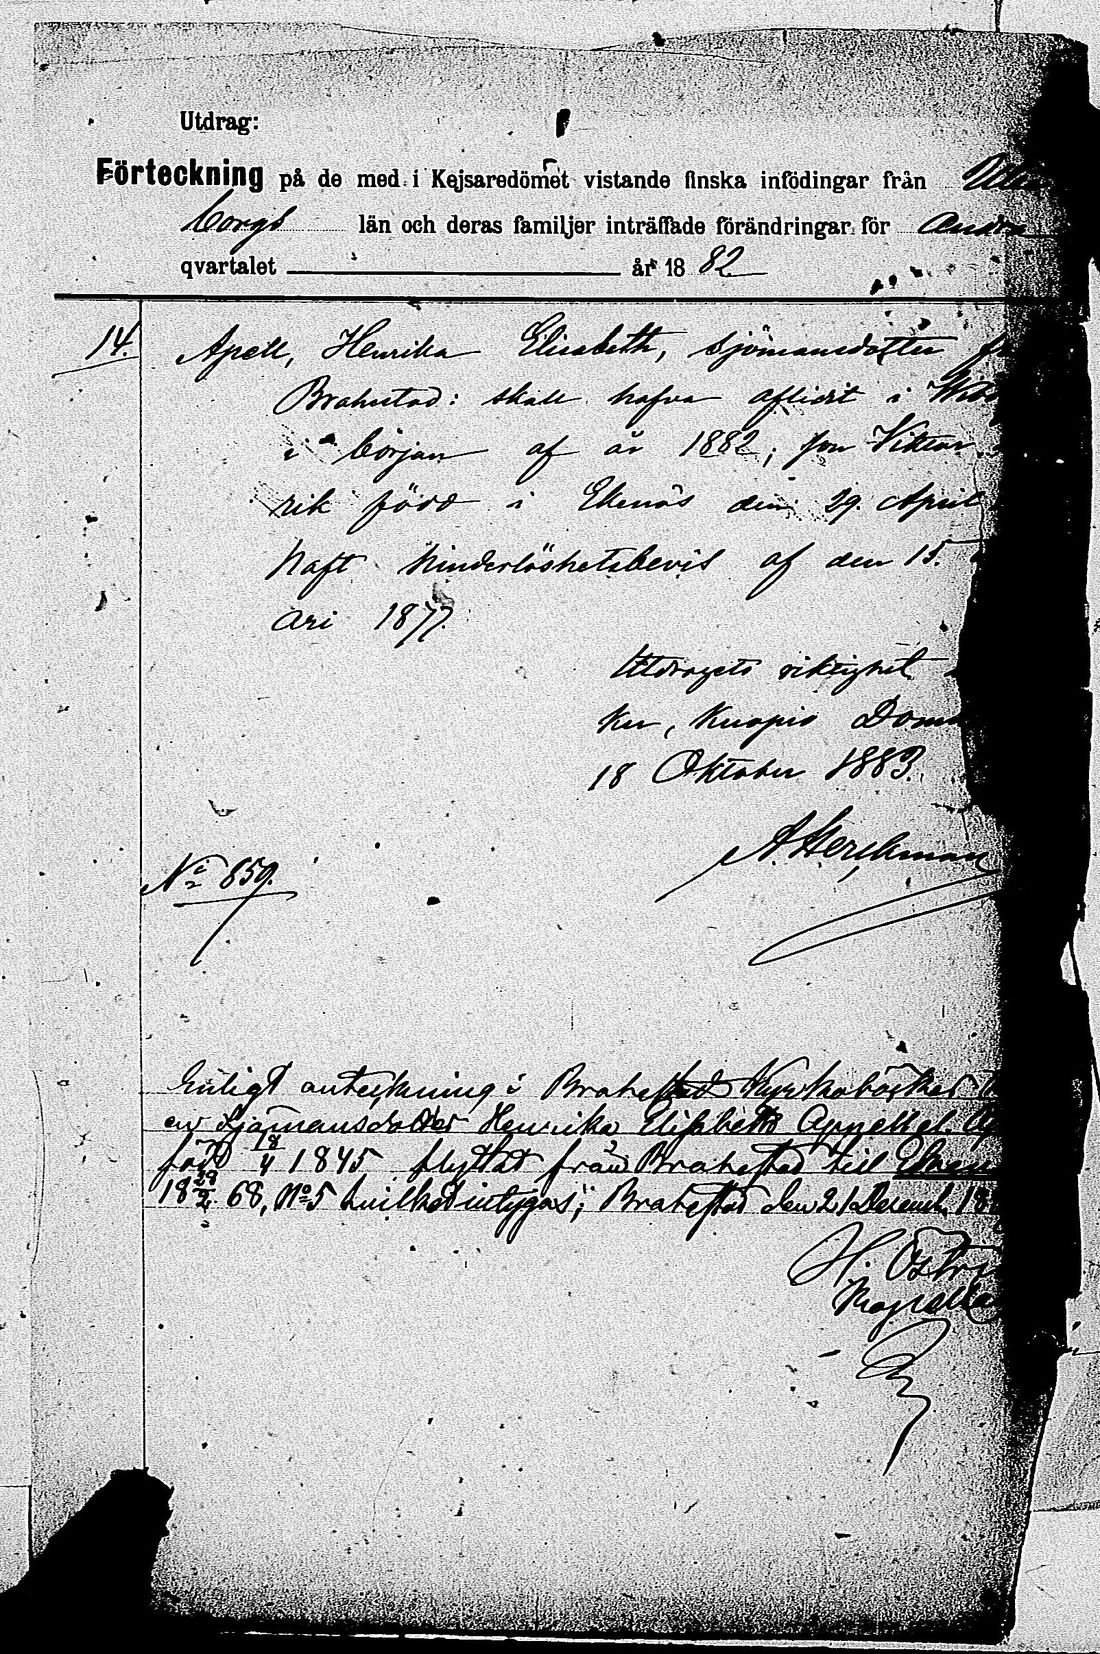 Utdrag:
Förteckning på de med i Kejsaredömet vistande finska infödingar från Ulea
borgs län och deras familjer inträffade förändringar för Andra
qvartalet år 1882
14. Apell, Henrika Elisabeth, sjömansdotter
Brahestad: skall hafva aflidit i
i början af år 1882; son Viktor
rik född i Ekenäs den 29 April
haft hinderlöshetsbevis af den 15.
ari 1877.
Utdragets riktighet
ker, Kuopio Dom
18 Oktober 1883.
A. Herckman
No 859.
Enligt anteckning i Brahestad Kyrkoböcker
en Sjömansdotter Henrika Elisabeth Appell
född 18/4 1845 flyttat från Brahestad till Eken
18 29/2 68, No 5 hvilket intygas; Brahestad den 21 Decemb. 18
H. Östr
Kapella